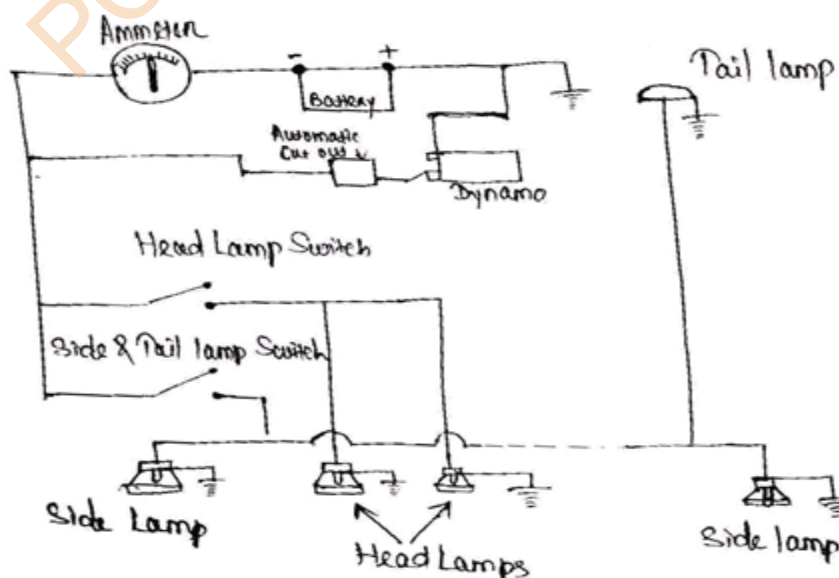 Ammeter
- +
Battery
Tail lamp
Automatic
Cut out
Dynamo
Head Lamp Switch
Side & Tail lamp Switch
Side Lamp
Head Lamps
Side lamp